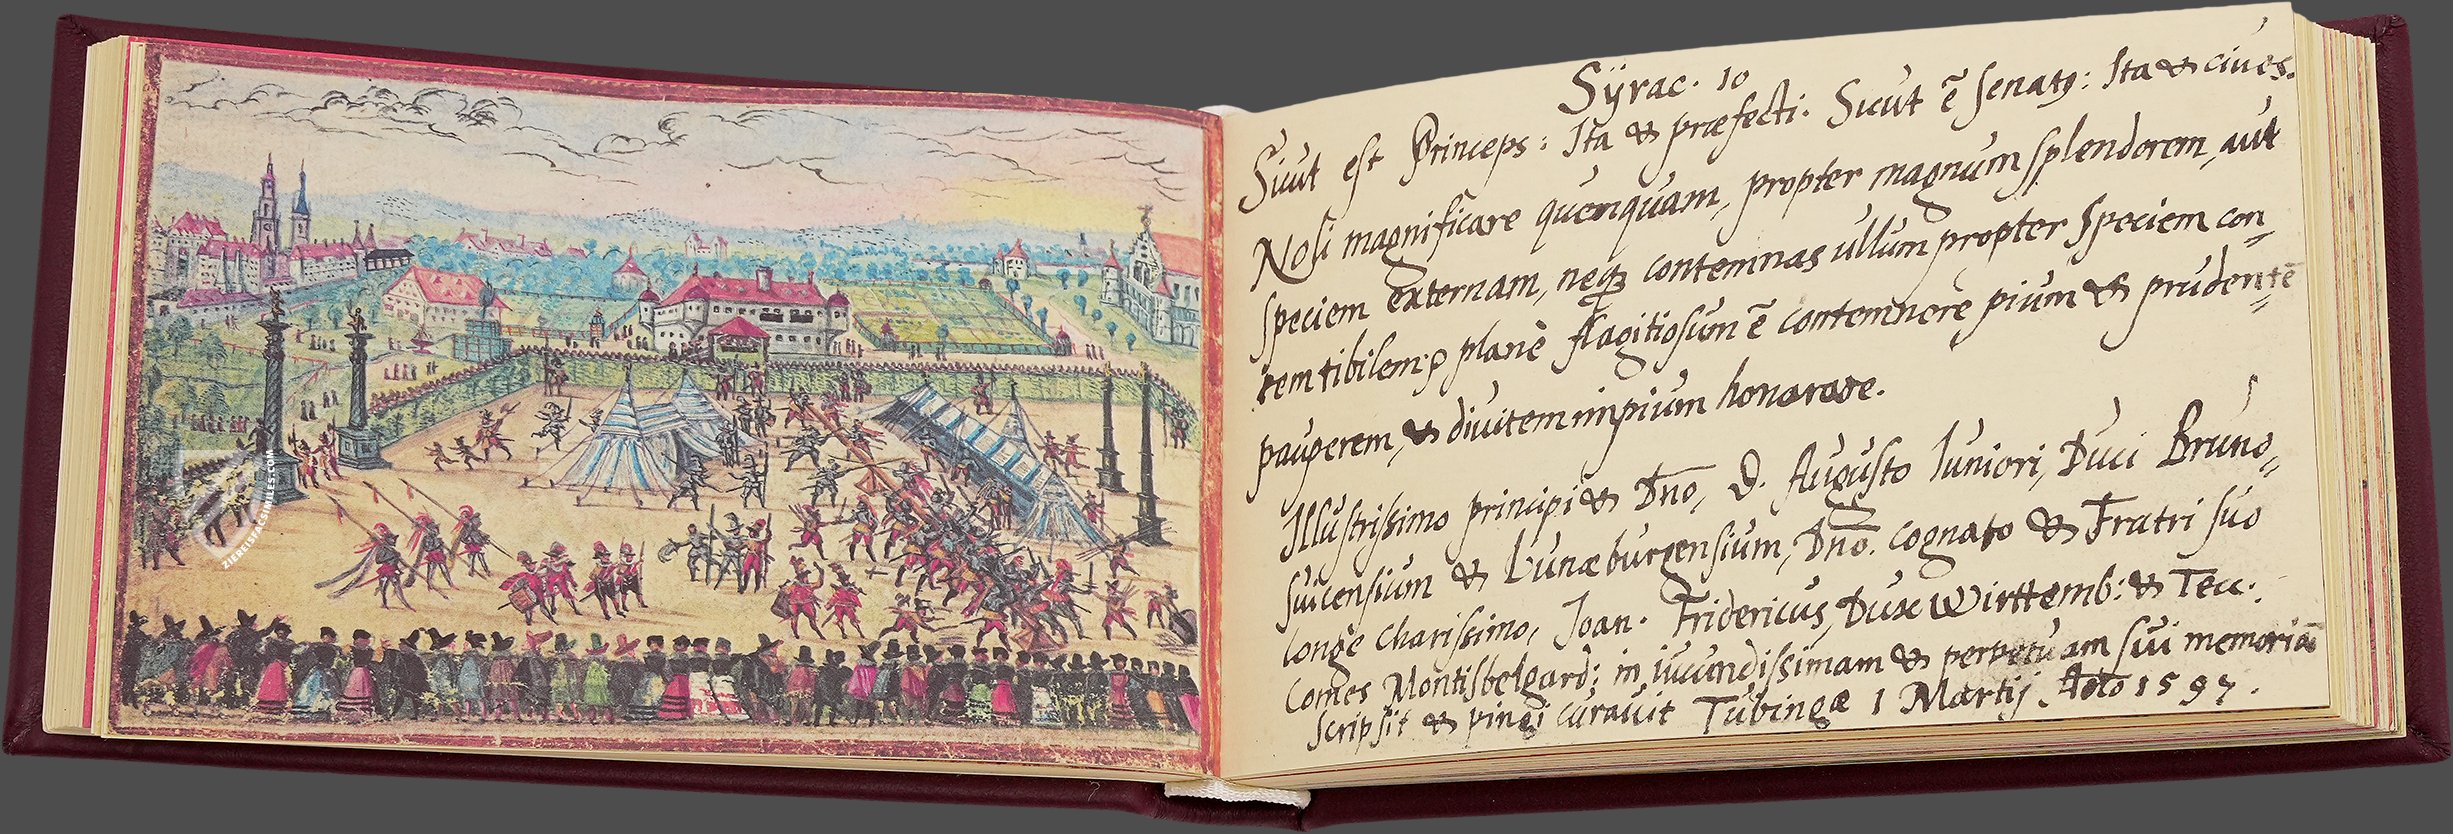 Sÿrac. 10
Sicut est Princeps: Ita & præfecti. Sicut ē senatꝰ: Ita & ciues.
Noli magnificare quenquam, propter magnum splendorem, aut
speciem externam, neqꝫ contemnas ullum propter speciem con,,
temtibilem: planè flagitiosum ē contemnere pium & prudentē
pauperem, & diuitem impium honorare.
Illustrissimo principi & Dño, D. Augusto Iuniori, Duci Bruno,,
suicensium & Lunæburgensium, Dño. cognato & Fratri suo
longè charissimo, Joan. Fridericus, Dux Wirttemb: & Tecc.
Comes Montisbelgard: in iucundissimam & perpetuam sui memoriā
scripsit & pingi curauit Tubingæ 1 Martij. Aõo 1597.
ZIEREISFACSIMILES.COM